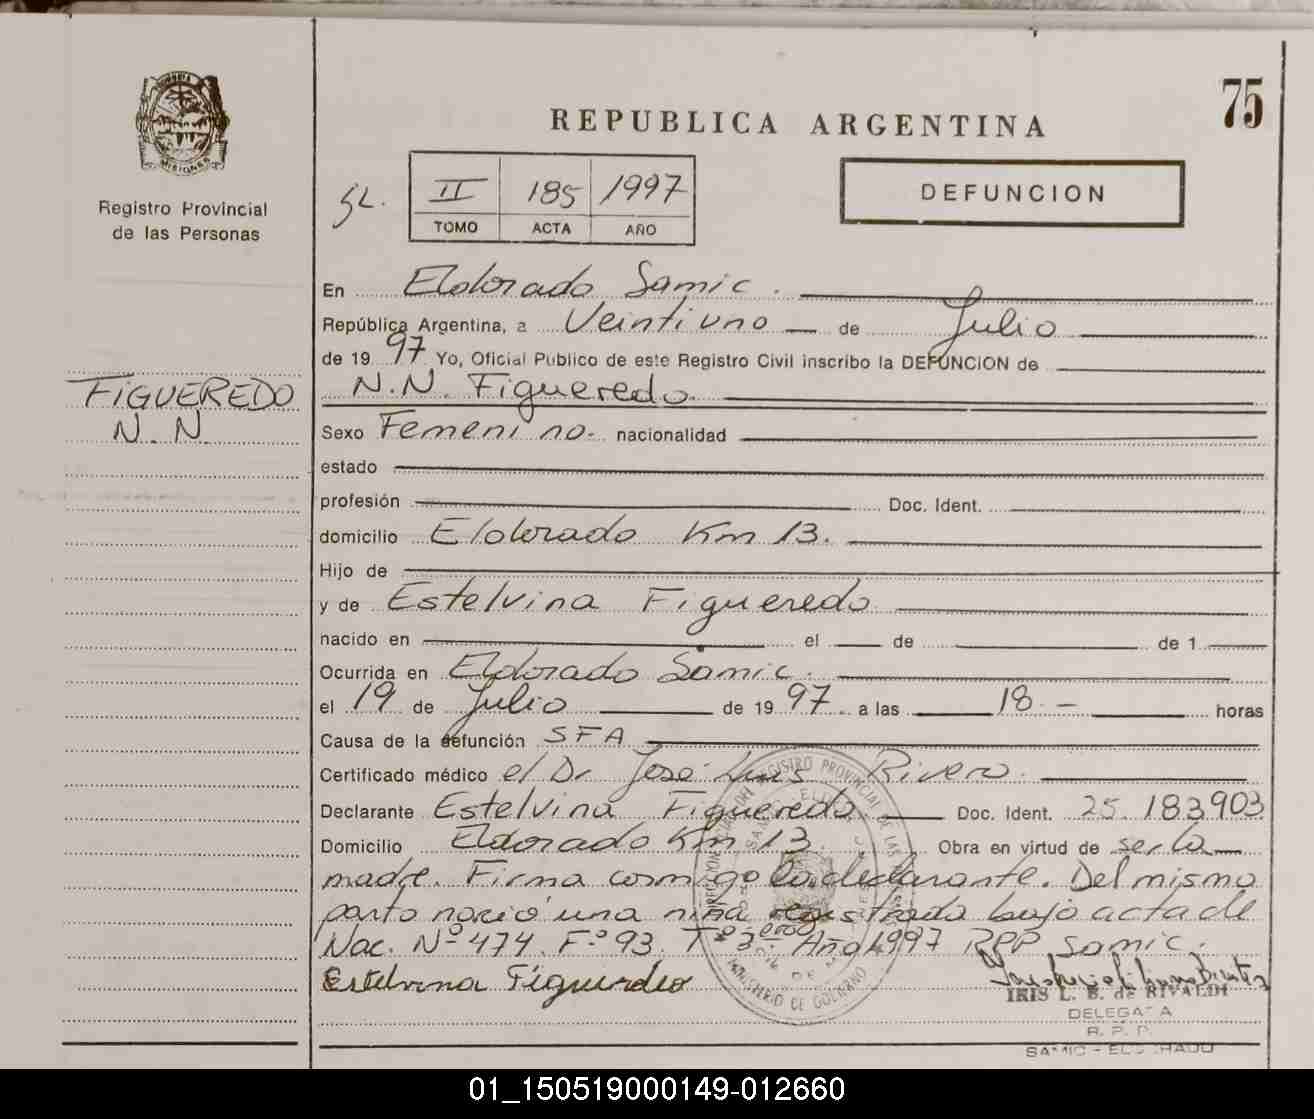 75
REPUBLICA ARGENTINA
MISIONES
SL. II 185 1997
TOMO ACTA AÑO
DEFUNCION
Registro Provincial
de las Personas
FIGUEREDO
N. N
En Eldorado Samic.
República Argentina, a Veintiuno de Julio
de 1997 Yo, Oficial Publico de este Registro Civil inscribo la DEFUNCION de
N.N. Figueredo.
Sexo Femenino. nacionalidad
estado
profesión Doc. Ident.
domicilio Eldorado Km 13.
Hijo de
y de Estelvina Figueredo
nacido en el de de 1
Ocurrida en Eldorado Samic.
el 19 de Julio de 1997 a las 18.- horas
Causa de la defunción SFA
Certificado médico el Dr José Luis Rivero.
Declarante Estelvina Figueredo Doc. Ident. 25.183903
Domicilio Eldorado Km 13 Obra en virtud de ser la
madre. Firma conmigo la declarante. Del mismo
parto nació una niña registrada bajo acta de
Nac. Nº 474. Fº 93. Tº 3- Año 1997 RPP Samic.
Estelvina Figueredo
IRIS L. B. de RIVALDI
DELEGADA
R. P. P.
SAMIC - ELDORADO
MINISTERIO DE GOBIERNO
01_150519000149-012660